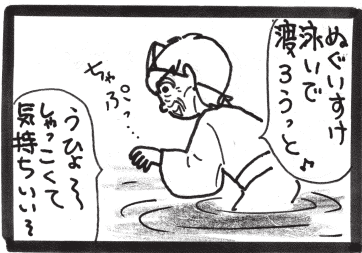 ぬぐいすけ
泳いで
渡ろうっと♪
ちゃぷっ…
うひょ～
しゃっこくて
気持ちいい～